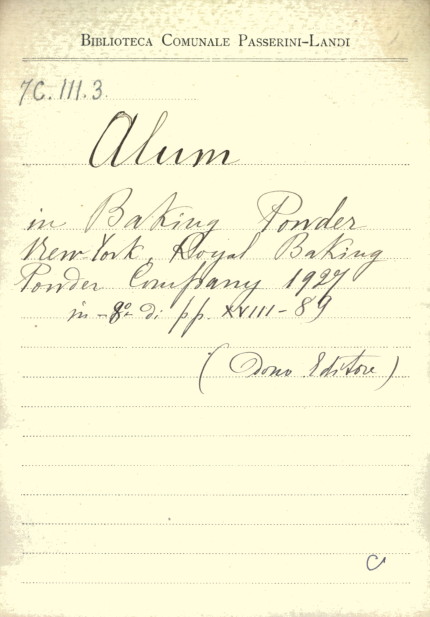 BIBLIOTECA COMUNALE PASSERINI-LANDI
7C.III.3.
Alum
in Baking Powder
New York, Royal Baking
Powder Company 1927
in-8º di pp. XVIII-89
(Dono Editore)
C